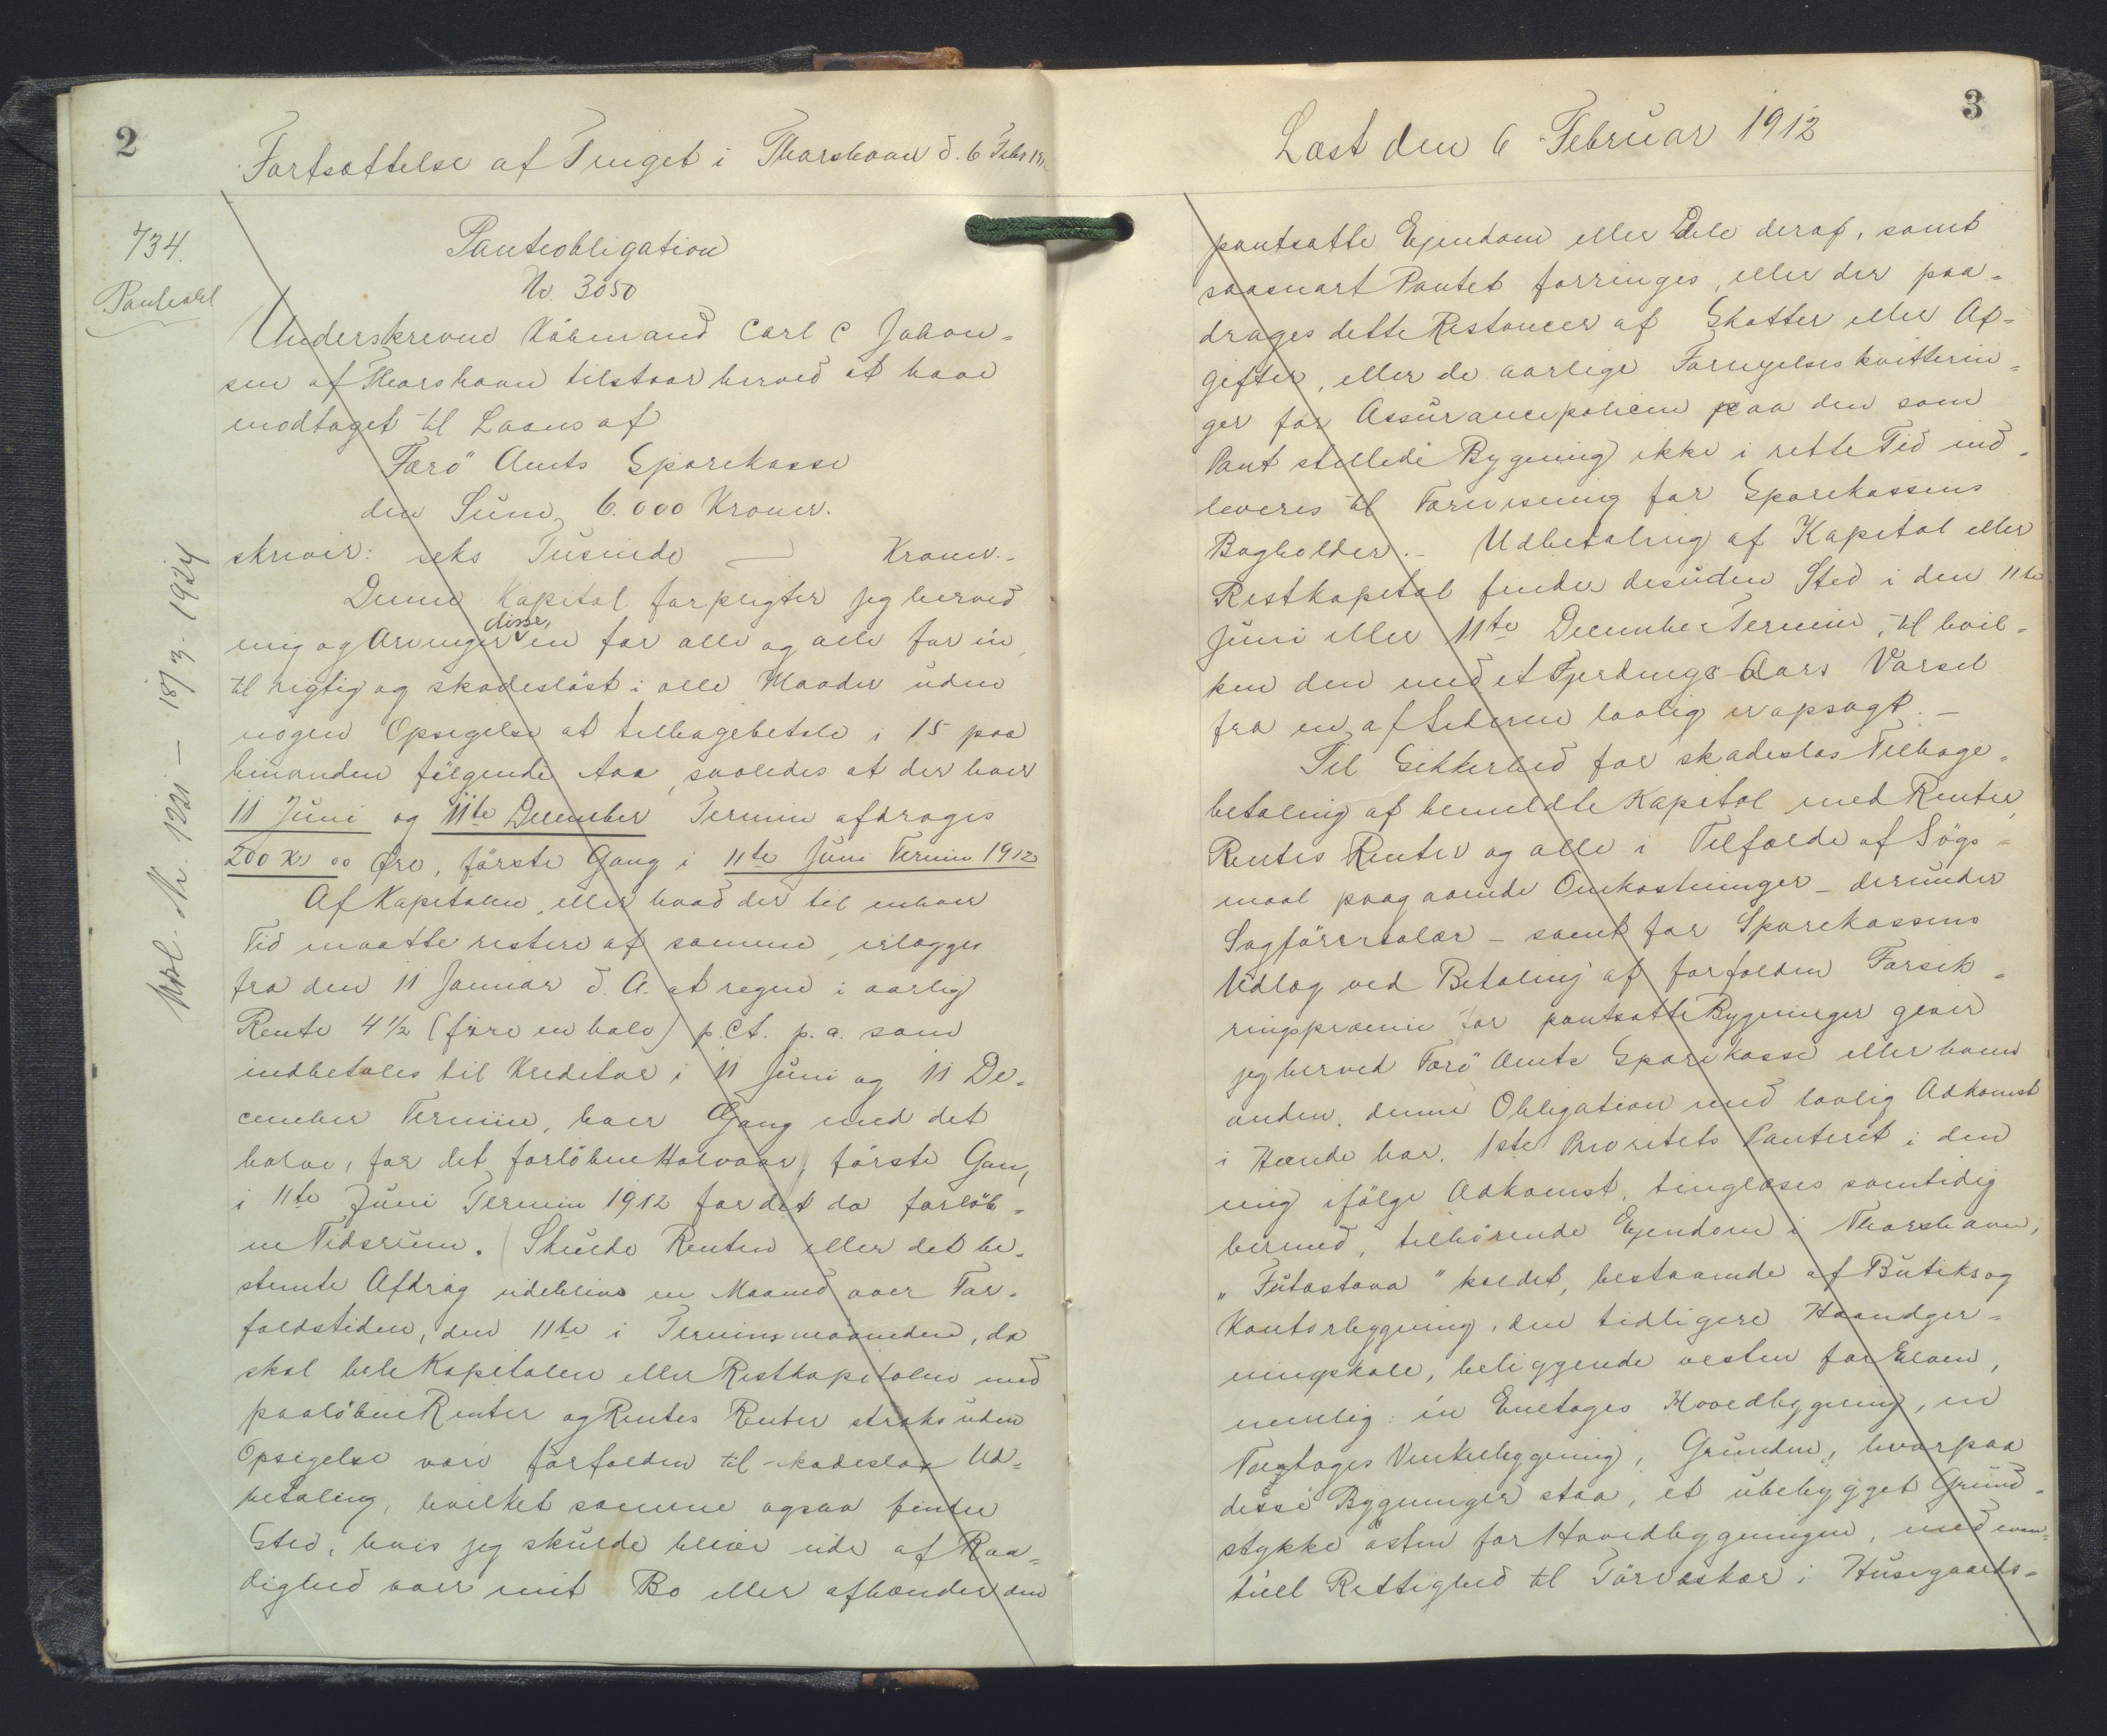 2
Fortsættelse af Tinget i Thorshavn d. 6 Febr 191
734.
Panteobl
Kvsl. Nr. 1221 — 18/3 - 1924
Panteobligation
No. 3050
Underskrevne Købmand Carl C Johan=
sen af Thorshavn tilstaar herved at have
modtaget til Laans af
Færö Amts Sparekasse
den Sum 6.000 Kroner.
skriver: seks Tusinde — Kroner.-
Denne Kapital forpligter jeg herved
mig og Arvinger disse, en for alle og alle for en,
til rigtig og skadesløst i alle Maader uden
nogen Opsigelse at tilbagebetale i 15 paa
hinanden fölgende Aar, saaledes at der hver
11 Juni og 11te December Termin afdrages
200 Kr 00 Øre, förste Gang i 11te Juni Termin 1912
Af Kapitalen, eller hvad der til enhver
Tid maatte restere af samme, erlægges
fra den 11 Januar d. A. at regne i aarlig
Rente 4 1/2 (fire en halv) p.Ct. p.a. som
indbetales til Kreditor i 11 Juni og 11 De=
cember Termin, hver Gang med det
halve, for det forlöbne Halvaar, förste Gang,
i 11te Juni Termin 1912 for det da forlöb=
ne Tidsrum. Skulde Renten eller det be=
stemte Afdrag udeblive en Maaned over For=
faldstiden, den 11te i Terminsmaaneden, da
skal hele Kapitalen eller Restkapitalen med
paalöbne Renter og Rentes Renter straks uden
Opsigelse være forfalden til skadeslos Ud=
betaling, hvilket samme ogsaa finder
Sted, hvis jeg skulde blive ude af Raa=
dighed over mit Bo eller afhænder den
3
Læst den 6 Februar 1912
pantsatte Ejendom eller Dele deraf, samt
saasnart Pantet forringes, eller der paa=
drages dette Restancer af Skatter eller Af=
gifter, eller de aarlige Fornyelseskvitterin=
ger for Assurancepolicen paa den som
Pant stillede Bygning ikke i rette Tid ind=
leveres til Forevisning for Sparekassens
Bogholder.- Udbetaling af Kapital eller
Restkapital finder desuden Sted i den 11te
Juni eller 11te December Termin, til hvil=
ken den med et Fjerdings Aars Varsel
fra en af Siderne lovlig er opsagt.—
Til Sikkerhed for skadeslos Tilbage=
betaling af bemeldte Kapital med Renter,
Rentes Renter og alle i Tilfælde af Sögs=
maal paagaaende Omkostninger – derunder
Sagförersalær – samt for Sparekassens
Udlæg ved Betaling af forfalden Forsik=
ringspræmie for pantsatte Bygninger giver
jeg herved Færö Amts Sparekasse eller hvem
anden, denne Obligation med lovlig Adkomst
i Hænde har, 1ste Prioritets Panteret i den
mig ifölge Adkomst, tinglæses samtidig
hermed, tilhörende Ejendom i Thorshavn,
"Futastova" kaldet, bestaaende af Butiks og
Kontorbygning, den tidligere Haandger=
ningskole, beliggende vesten for Elven,
nemlig: en Enetages Hovedbygning, en
Toetages Vinkelbygning, Grunden, hvorpaa
disse Bygninger staa, et ubebygget Grund=
stykke östen for Hovedbygningen, med even=
tuel Rettighed til Törveskær i Husegaards=